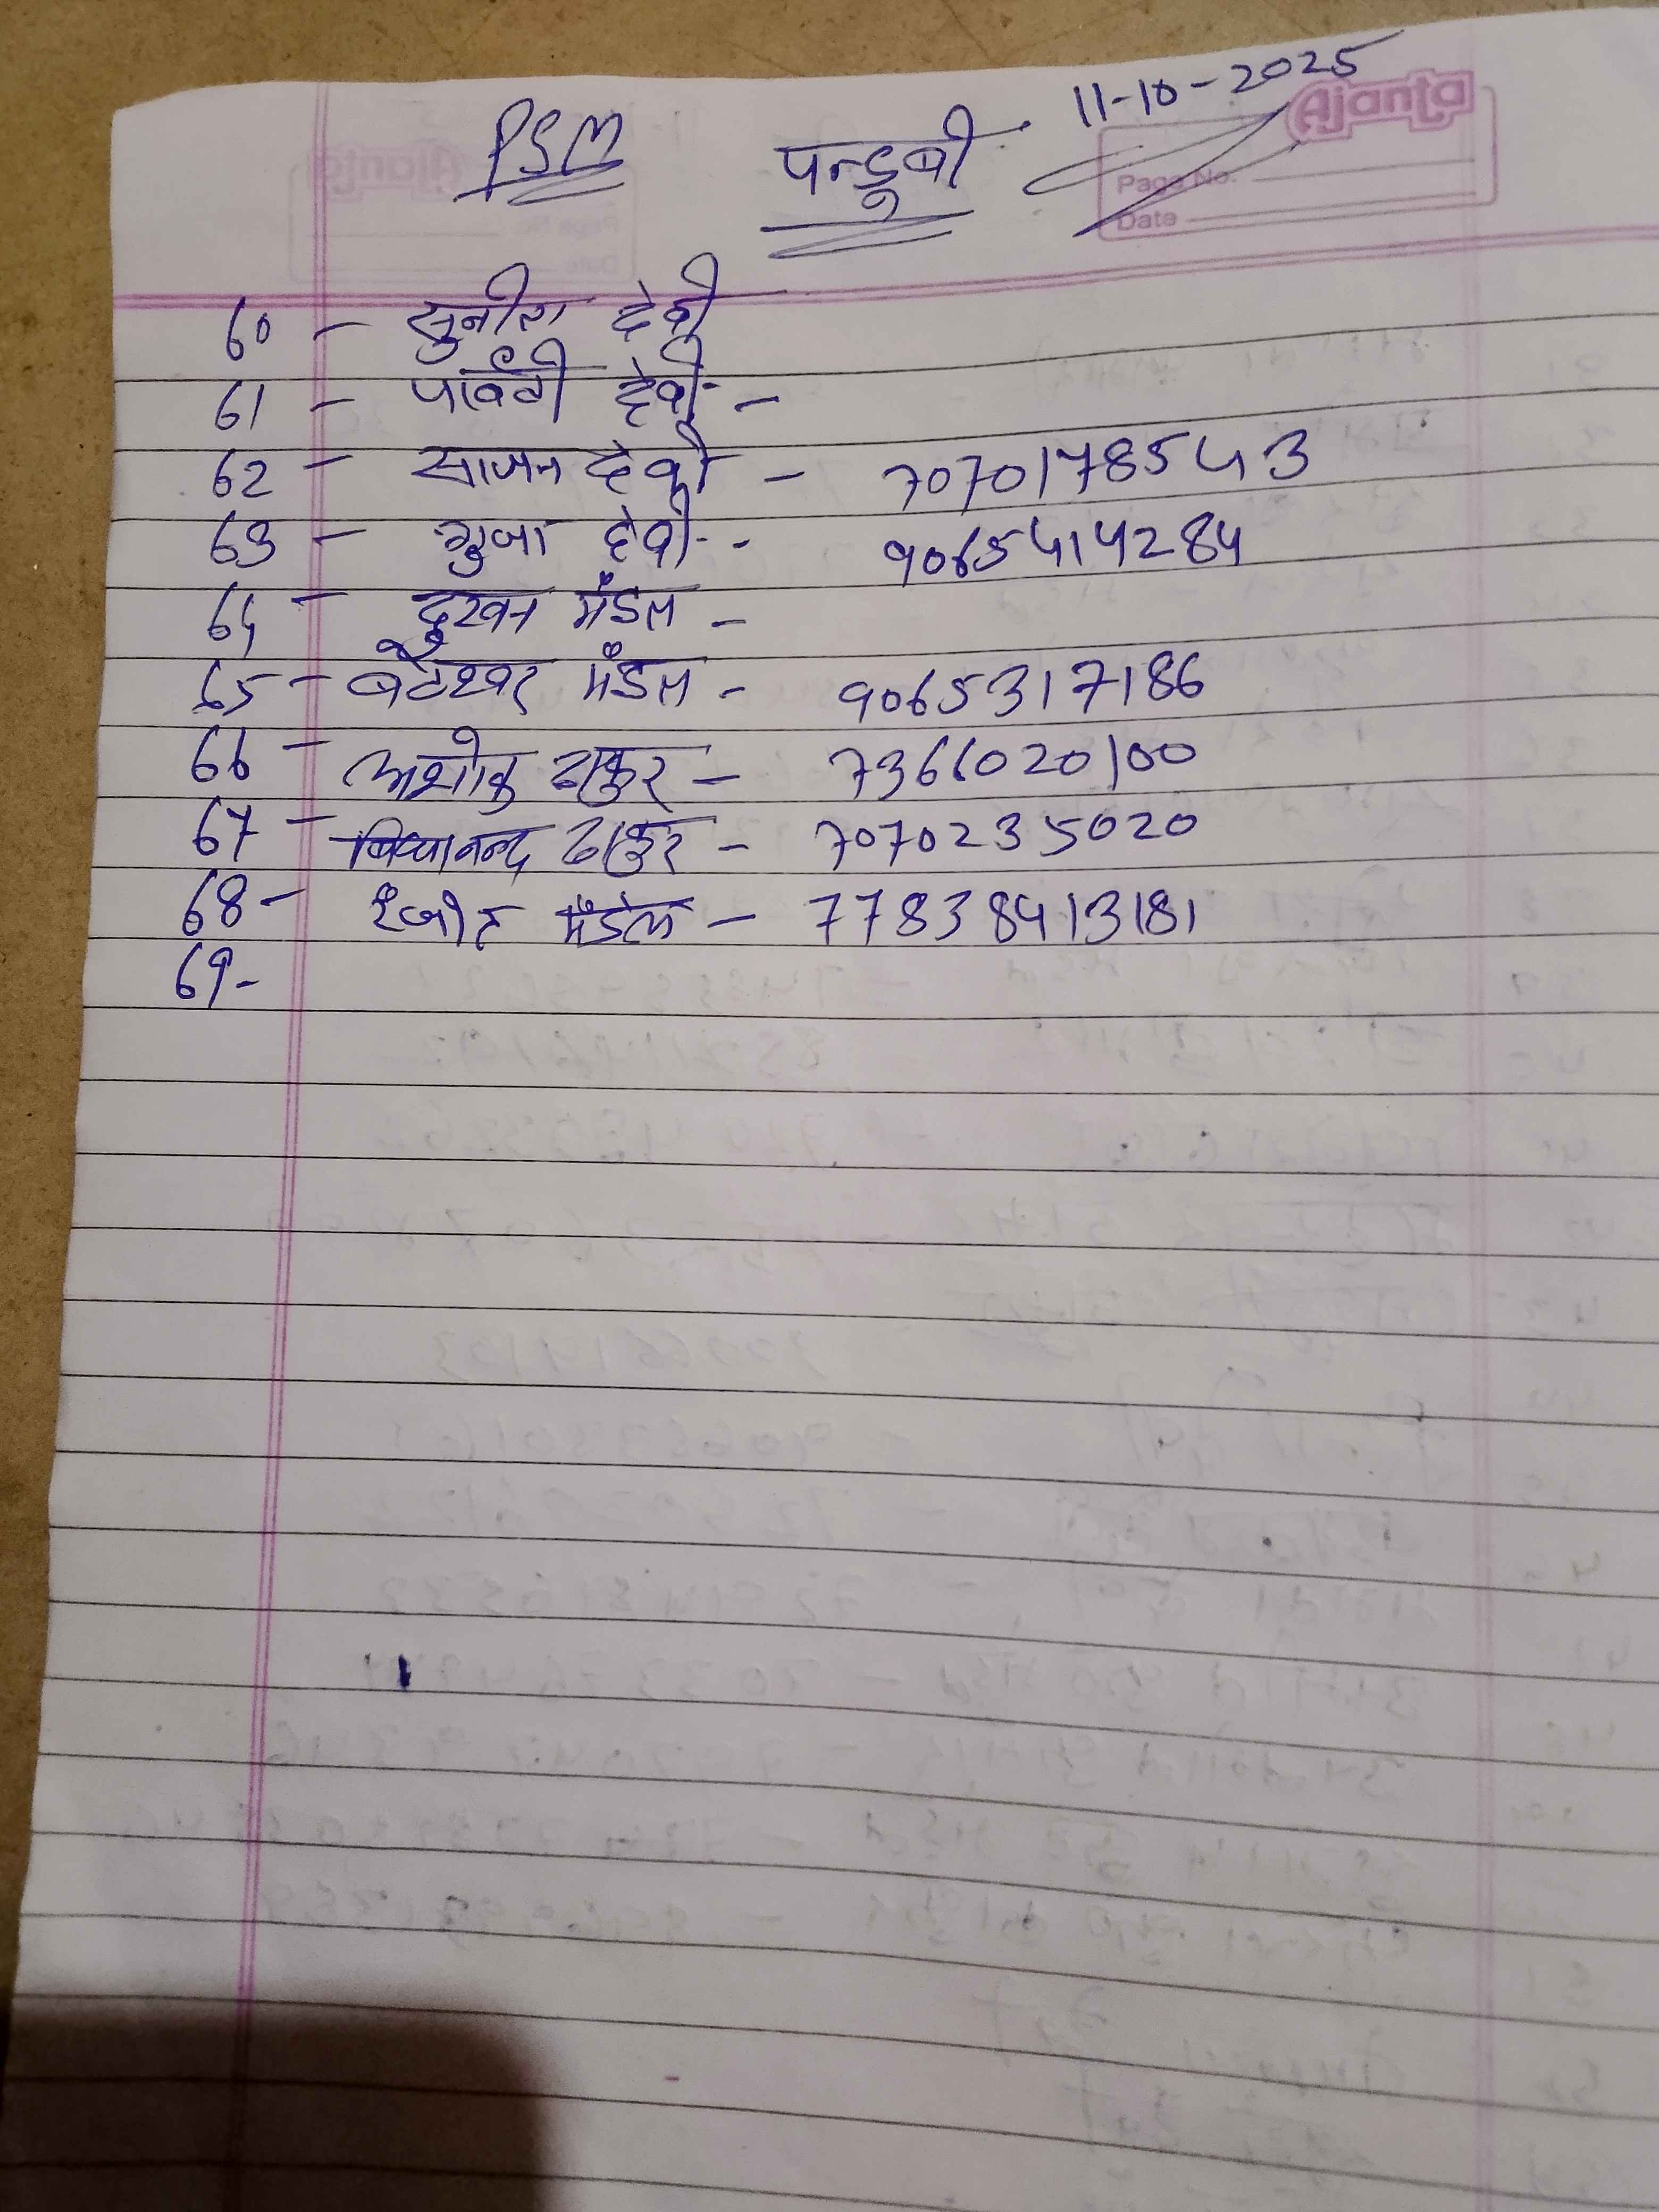 11-10-2025
Ajanta
PSM पन्डूबी
Page No.
Date
60 - सुनीता देवी
61 - पार्वती देवी -
62 - साजन देवी - 7070178543
63 - गुजा देवी - 9065414284
64 - दुखन मंडल -
65 - बटेश्वर मंडल - 9065317186
66 - अशोक ठाकुर - 7366020100
67 - ठाकुर - 7070235020
68 - रंजीत मंडल - 77838413181
69 -